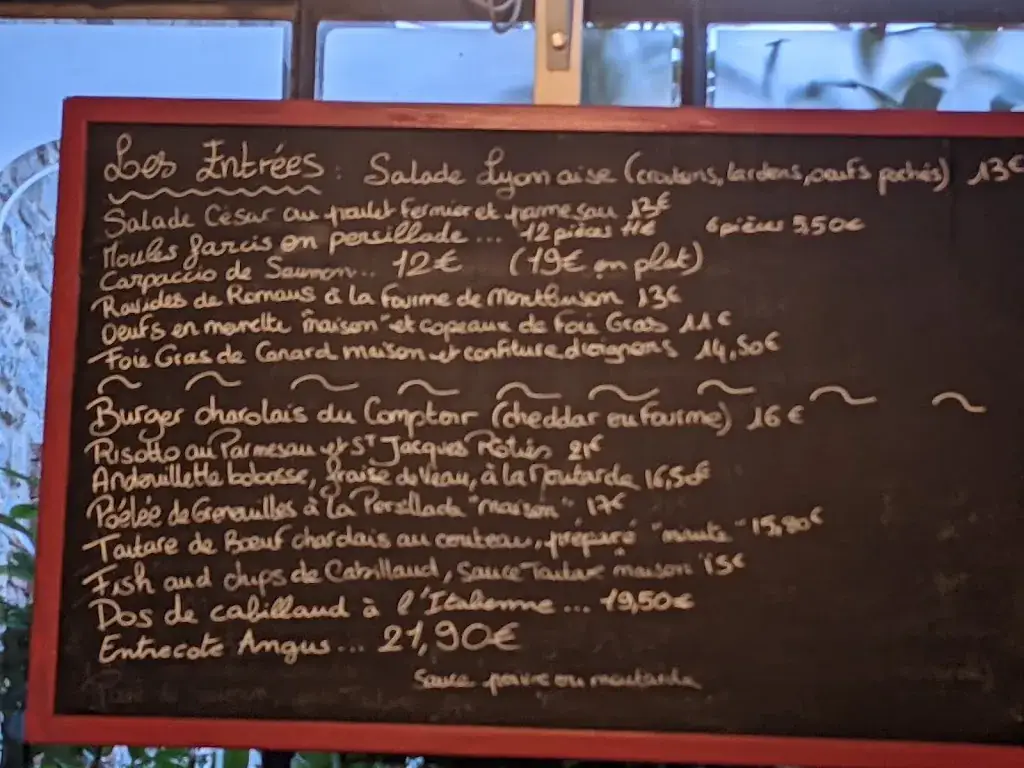 Les Entrées : Salade Lyonnaise (croutons, lardons, oeufs pochés) 13€
Salade César au poulet Fermier et parmesan 13€
Moules farcis en persillade ... 12 pièces 11€ 6 pièces 5,50€
Carpaccio de Saumon .. 12€ (19€ en plat)
Ravioles de Romans à la fourme de Montbrison 13€
Oeufs en meurette "maison" et copeaux de Foie Gras 11€
Foie Gras de Canard maison et confiture d'oignons 14,50€
Burger charolais du Comptoir (cheddar ou fourme) 16€
Risotto au Parmesan et St Jacques Rôties 21€
Andouillette bobosse, fraise de Veau, à la Moutarde 16,50€
Poêlée de Grenouilles à la Persillade "maison" 17€
Tartare de Boeuf charolais au couteau, préparé "minute" 15,80€
Fish and chips de Cabillaud, Sauce Tartare "maison" 15€
Dos de cabillaud à l'Italienne ... 19,50€
Entrecote Angus ... 21,90€
Sauce poivre ou moutarde